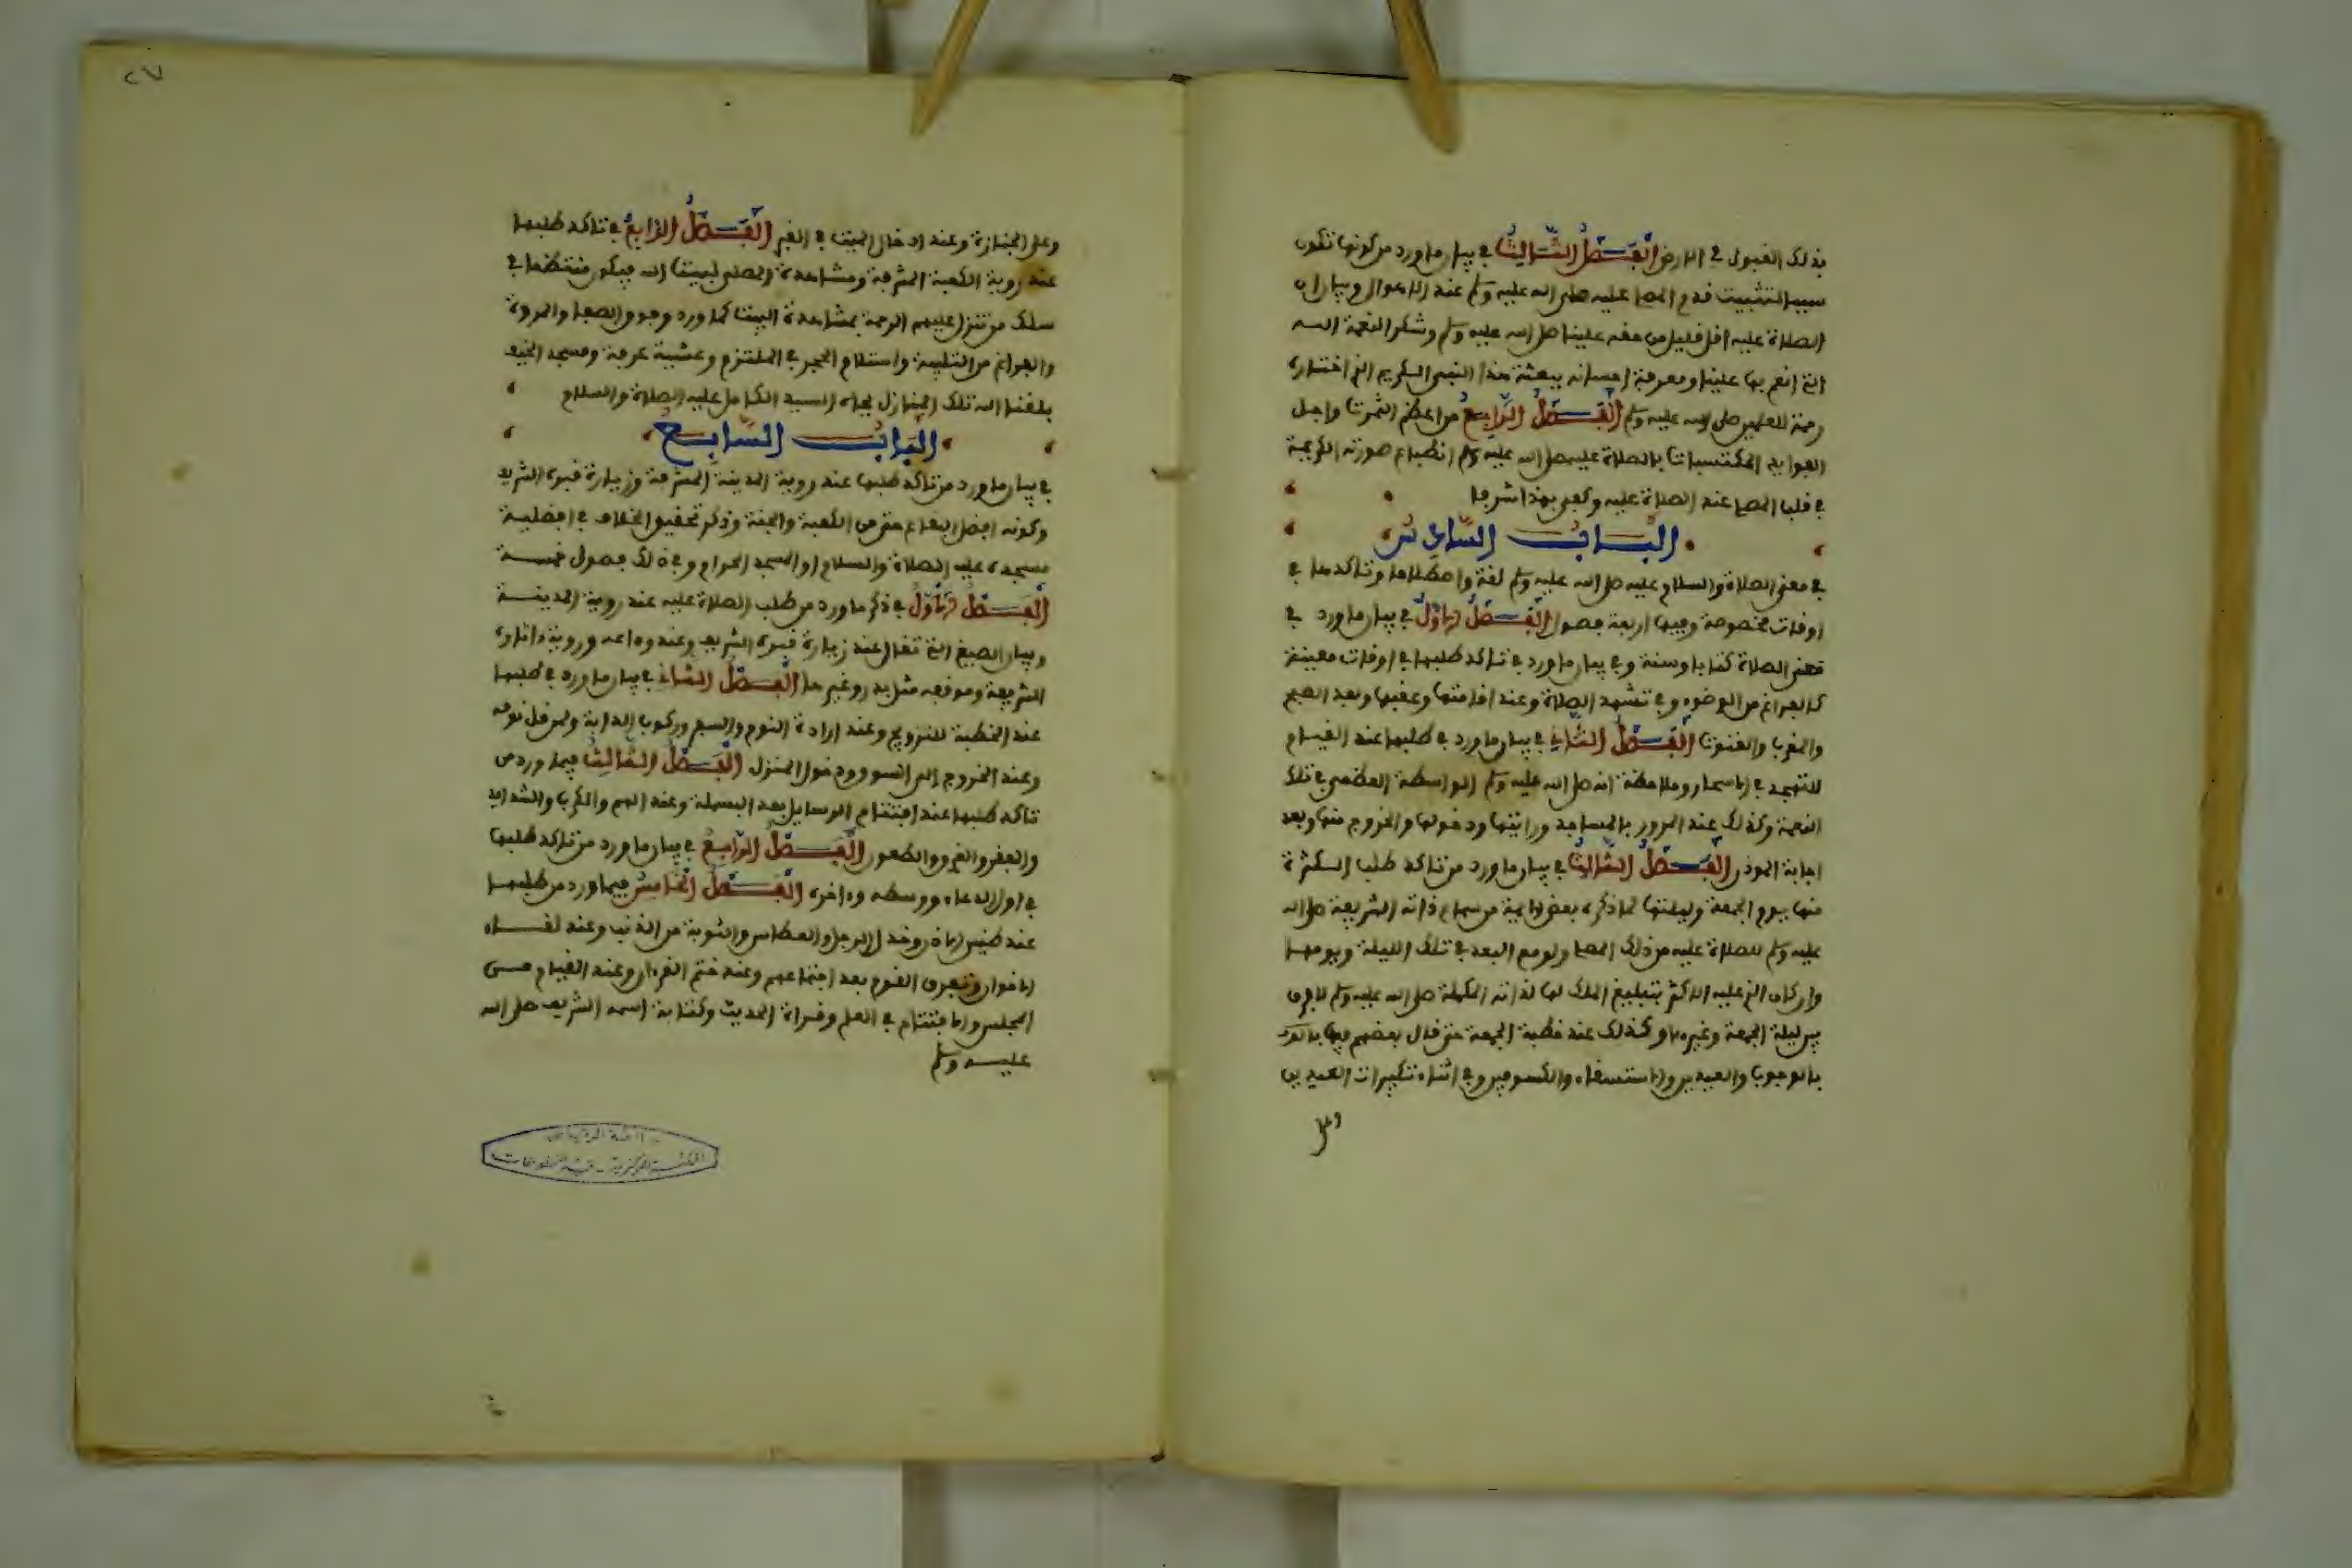 بذلك القبول في الارض الفصل الثالث في بيان ما ورد من كونها تكون
سببا لتثبيت قدم المصلي عليه صلى الله عليه وسلم عند الاهوال وبيان ان
الصلاة عليه اقل قليل من حقه علينا صلى الله عليه وسلم وشكر النعمة الله
التي انعم بها علينا ومعرفة احسانه ببعثة هذا النبي الكريم الذي اختاره
رحمة للعلمين صلى الله عليه وسلم الفصل الرابع من اعظم الثمرات واجل
الفوايد المكتسبات بالصلاة عليه صلى الله عليه وسلم انطباع صورته الكريمة
في قلب المصلي عند الصلاة عليه وكفى بهذا شرفا
الباب السادس
في معنى الصلاة والسلام عليه صلى الله عليه وسلم لغة واصطلاحا وتاكدها في
اوقات مخصوصة وفيها اربعة فصول الفصل الاول في بيان ما ورد في
معنى الصلاة كتابا وسنة وفي بيان ما ورد في تاكد طلبها في اوقات معينة
كالفراغ من الوضوء وفي تشهد الصلاة وعند اقامتها وعقبها وبعد الصبح
والمغرب والقنوت الفصل الثاني في بيان ما ورد في طلبها عند القيام
للتهجد في الاسحار وملاحظة انه صلى الله عليه وسلم الواسطة العظمى في تلك
النعمة وكذلك عند المرور بالمساجد ورايتها ودخولها والخروج منها وبعد
اجابة الموذن الفصل الثالث في بيان ما ورد من تاكد طلب الكثرة
منها يوم الجمعة وليلتها لما ذكره بعض الايمة من سماع ذاته الشريفة صلى الله
عليه وسلم للصلاة عليه من ذلك المصلي ولو مع البعد في تلك الليلة ويومها
وان كان الذي عليه الاكثر بتبليغ الملك لها لذاته المكملة صلى الله عليه وسلم لا فرق
بين ليلة الجمعة وغيرها وكذلك عند خطبة الجمعة حتى قال بعضهم فيها
بالوجوب والعيدين والاستسقاء والكسوفين وفي اثناء تكبيرات العيدين
وعلى
وعلى الجنازة وعند ادخال الميت في القبر الفصل الرابع في تاكد طلبها
عند روية الكعبة المشرفة ومشاهدة المصلي لبيت الله فيكون منتظما في
سلك من تنزل عليهم الرحمة بمشاهدة البيت كما ورد وفوق الصفا والمروة
والفراغ من التلبية واستلام الحجر في الملتزم وعشية عرفة ومسجد الخيف
بلغنا الله تلك المنازل بجاه السيد الكامل عليه الصلاة والسلام
الباب السابع
في بيان ما ورد من تاكد طلبها عند روية المدينة المشرفة وزيارة قبره الشريف
وكونه افضل البقاع حتى من الكعبة والجنة وذكر تحقيق الخلاف في افضلية
مسجده عليه الصلاة والسلام او المسجد الحرام وفي ذلك فصول خمسة
الفصل الاول في ذكر ما ورد من طلب الصلاة عليه عند روية المدينة
وبيان الصيغ التي تقال عند زيارة قبره الشريف وعند وداعه وروية اثاره
الشريفة ومواقعه مثل بدر وغيرها الفصل الثاني في بيان ما ورد في طلبها
عند الخطبة للتزويج وعند ارادة النوم والسفر وركوب الدابة ولمن قل نومه
وعند الخروج الى السوق ودخول المنزل الفصل الثالث فيما ورد من
تاكد طلبها عند افتتاح الرسايل بعد البسملة وعند الهم والكرب والشدايد
والفقر والغرق والطاعون الفصل الرابع في بيان ما ورد من تاكد طلبها
في اول الدعاء ووسطه وءاخره الفصل الخامس فيما ورد من طلبها
عند طنين الاذن وخدر الرجل والعطاس والتوبة من الذنب وعند لقاء
الاخوان وتفرق القوم بعد اجتماعهم وعند ختم القرءان وعند القيام من
المجلس والافتتاح في العلم وقراءة الحديث وكتابة اسمه الشريف صلى الله
عليه وسلم
المكتبة المركزية - قسم المخطوطات